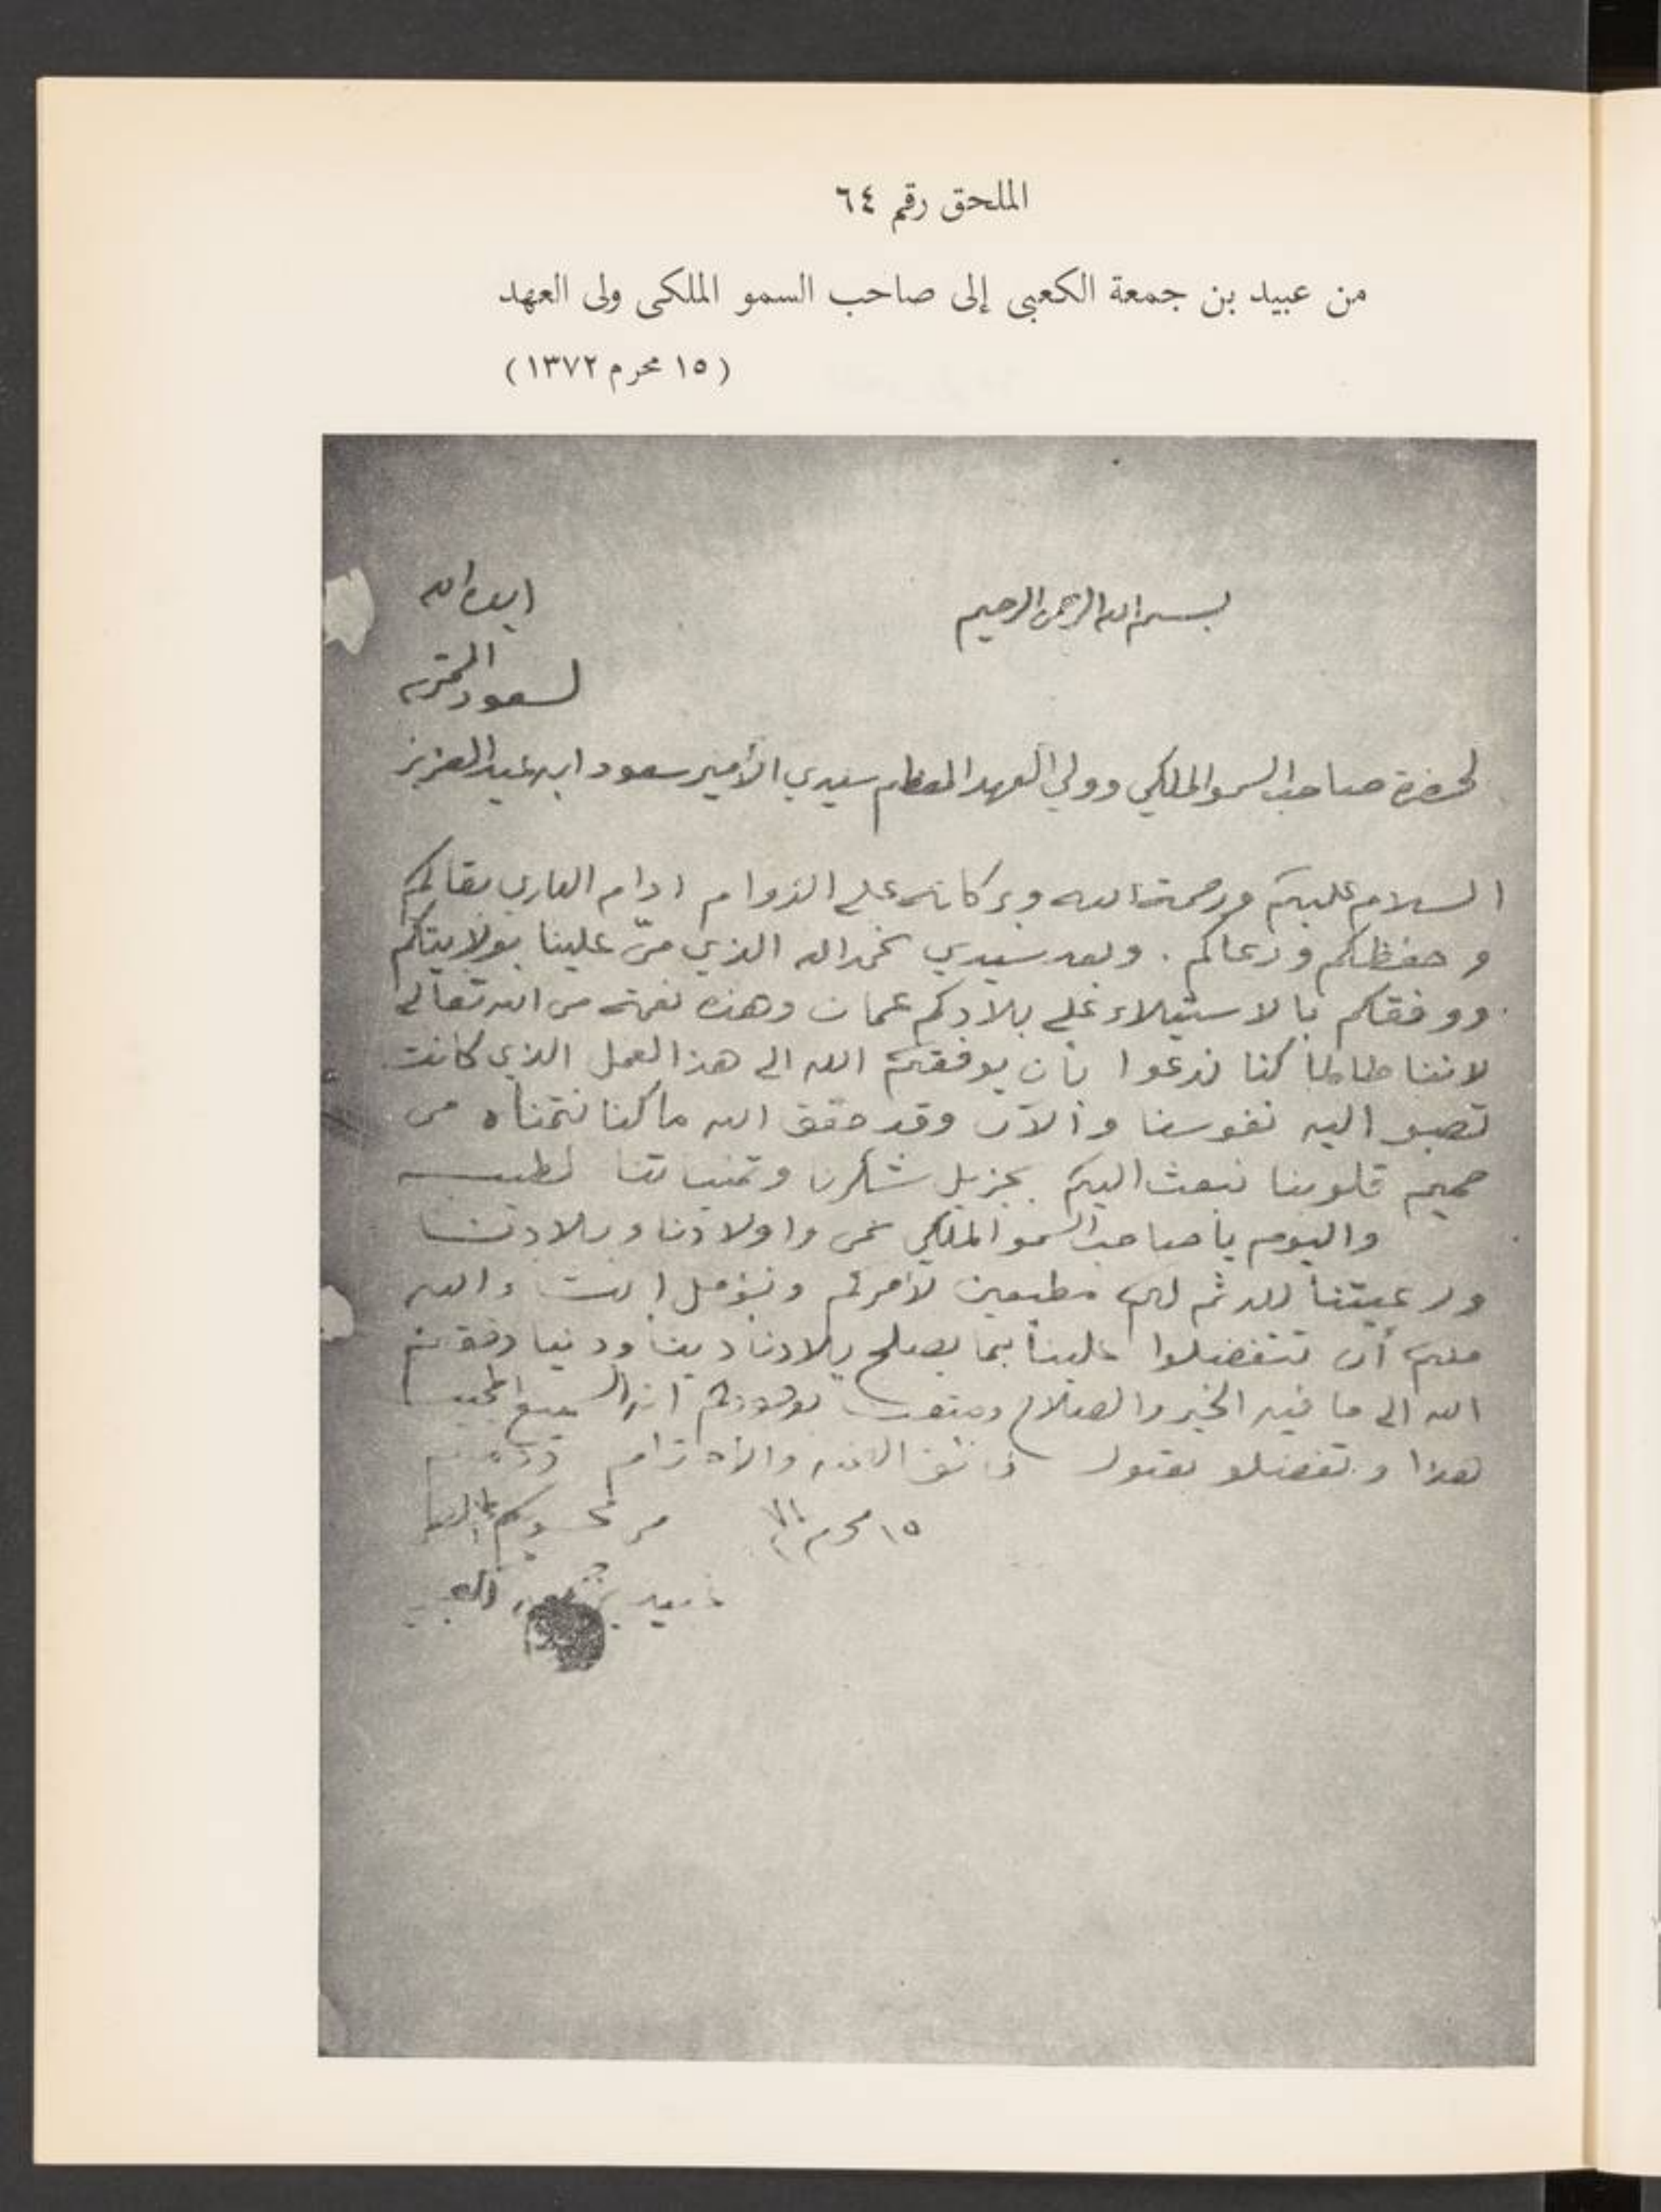 الملحق رقم ٦٤
من عبيد بن جمعة الكعبى إلى صاحب السمو الملكى ولى العهد
(١٥ محرم ١٣٧٢)
بسم الله الرحمن الرحيم
ايده الله
لحضرة صاحب السمو الملكي وولي العهد المعظم سيدي الأمير سعود ابن عبد العزيز
السلام عليكم ورحمة الله وبركاته على الدوام ادام الباري بقاكم
وحفظكم ورعاكم. وبعد سيدي نحمد الله الذي منّ علينا بولايتكم
ووفقكم بالاستيلاء على بلادكم عمان وهذه نعمة من الله تعالى
لاننا طالما كنا ندعوا بأن يوفقكم الله الى هذا العمل الذي كانت
تصبو اليه نفوسنا والآن وقد حقق الله ما كنا نتمناه من
صميم قلوبنا نبعث اليكم بجزيل شكرنا وتمنياتنا
واليوم يا صاحب السمو الملكي نحن واولادنا وبلادنا
ورعيتنا لله ثم لكم مطيعين لأمركم ونؤمل من الله
منكم أن تتفضلوا علينا بما يصلح بلادنا دينا ودنيا وفقكم
الله الى ما فيه الخير والصلاح انه السميع المجيب
هذا وتفضلو بقبول فائق والاحترام
١٥ محرم من
عبيد بن